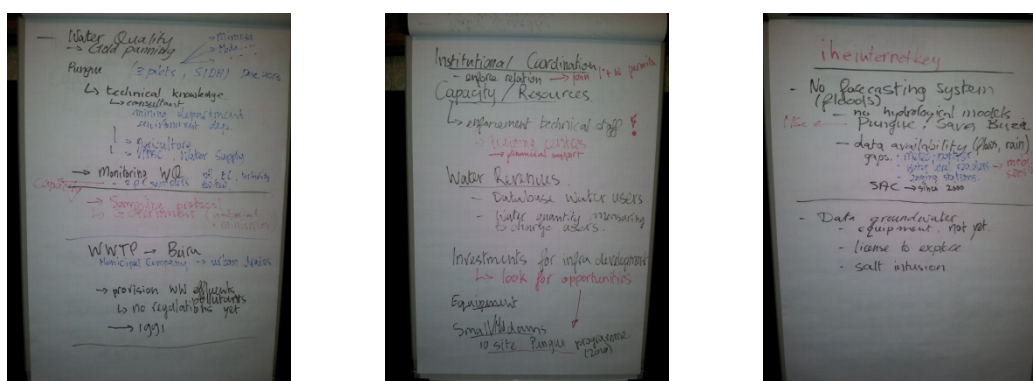 Water Quality
→ Gold panning
Pungue (3 pilots, SIDA)
↳ technical knowledge
↳ consultant
mining department
environment dep.
Agriculture
Water Supply
→ Monitoring WQ
Capacity
→ Sampling protocol
WWTP → Beira
Municipal Company → urban
→ provision WW effluents
pollutants
↳ no regulations yet
→ 1991
Institutional Coordination
- enforce relation → join
Capacity / Resources
↳ enforcement technical staff !
↳ training
→ financial support
Water Revenues
- Database water users
- Water quantity measuring
to charge users.
Investments for infra development
↳ look for opportunities
Equipement
Small
10 site Pungue programme
iheinternetkey
- No forecasting system
(floods)
- no hydrological models
Pungue, Save, Buzi
- data availability
gaps
SAC → since 2000
- Data groundwater
- equipment, not yet.
- license to explore
- salt intusion